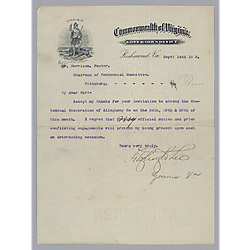 Commonwealth of Virginia,
GOVERNOR'S OFFICE,
Richmond, Va. Sept 14th 188
Mr. Morrison, Foster,
Chairman of Centennial Committee.
Pittsburg,
My dear Sir:-
Accept my thanks for your invitation to attend the Cen-
tennial Celebration of Allegheny Co on the 24th, 25th & 26th of
this month. I regret that official duties and prior
conflicting engagements will prevent my being present upon such
an interesting occasion.
Yours very truly,
Fitzhugh Lee
Governor Va